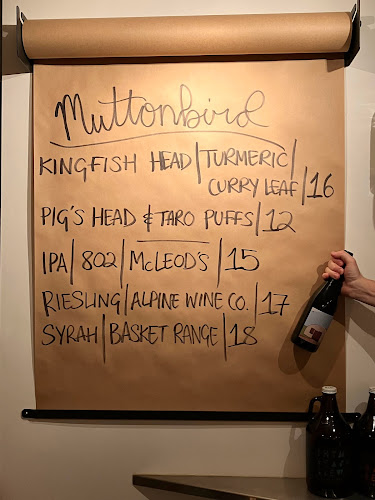 Muttonbird
KINGFISH HEAD | TURMERIC |
CURRY LEAF | 16
PIG'S HEAD & TARO PUFFS | 12
IPA | 802 | McLEOD'S | 15
RIESLING | ALPINE WINE CO. | 17
SYRAH | BASKET RANGE | 18